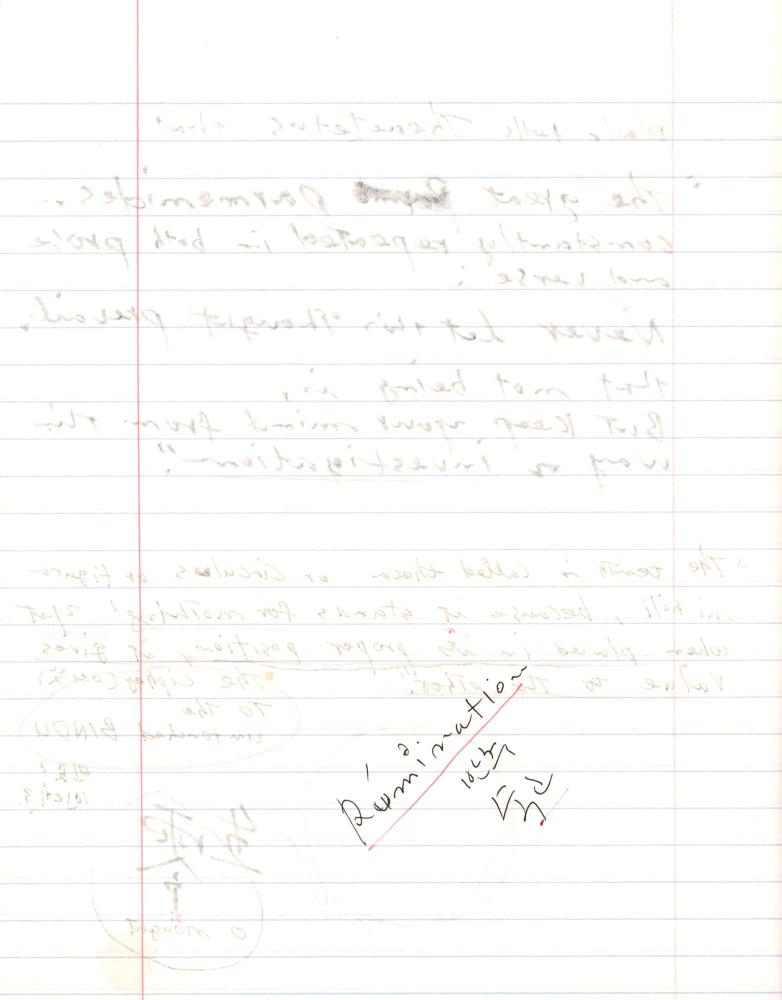 Plato tells Theaetetus that
"The great Parmenides..
constantly repeated in both prose
and verse :
Never Let this Thought prevail,
that not being is,
But Keep your mind from this
way of investigation".
"The tenth is called theca or circulus or figura
nihili, because it stands for 'nothing'. Yet
when placed in its proper position, it gives
value to the other."
The cipher
To the
untouched BINDU
Rumination